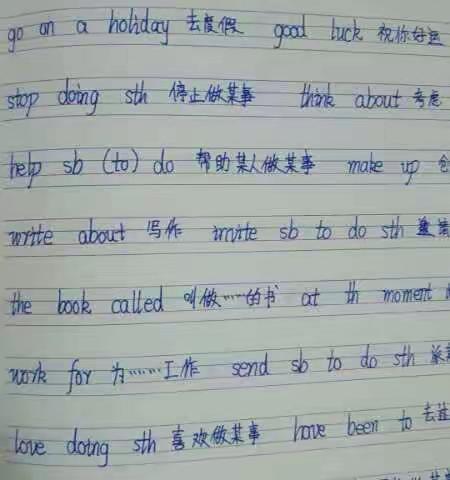 go on a holiday 去度假 good luck 祝你好运
stop doing sth 停止做某事 think about 考虑
help sb (to) do 帮助某人做某事 make up
write about 写作 invite sb to do sth 邀请
the book called 叫做……的书 at th moment
work for 为……工作 send sb to do sth 派
love doing sth 喜欢做某事 have been to 去过